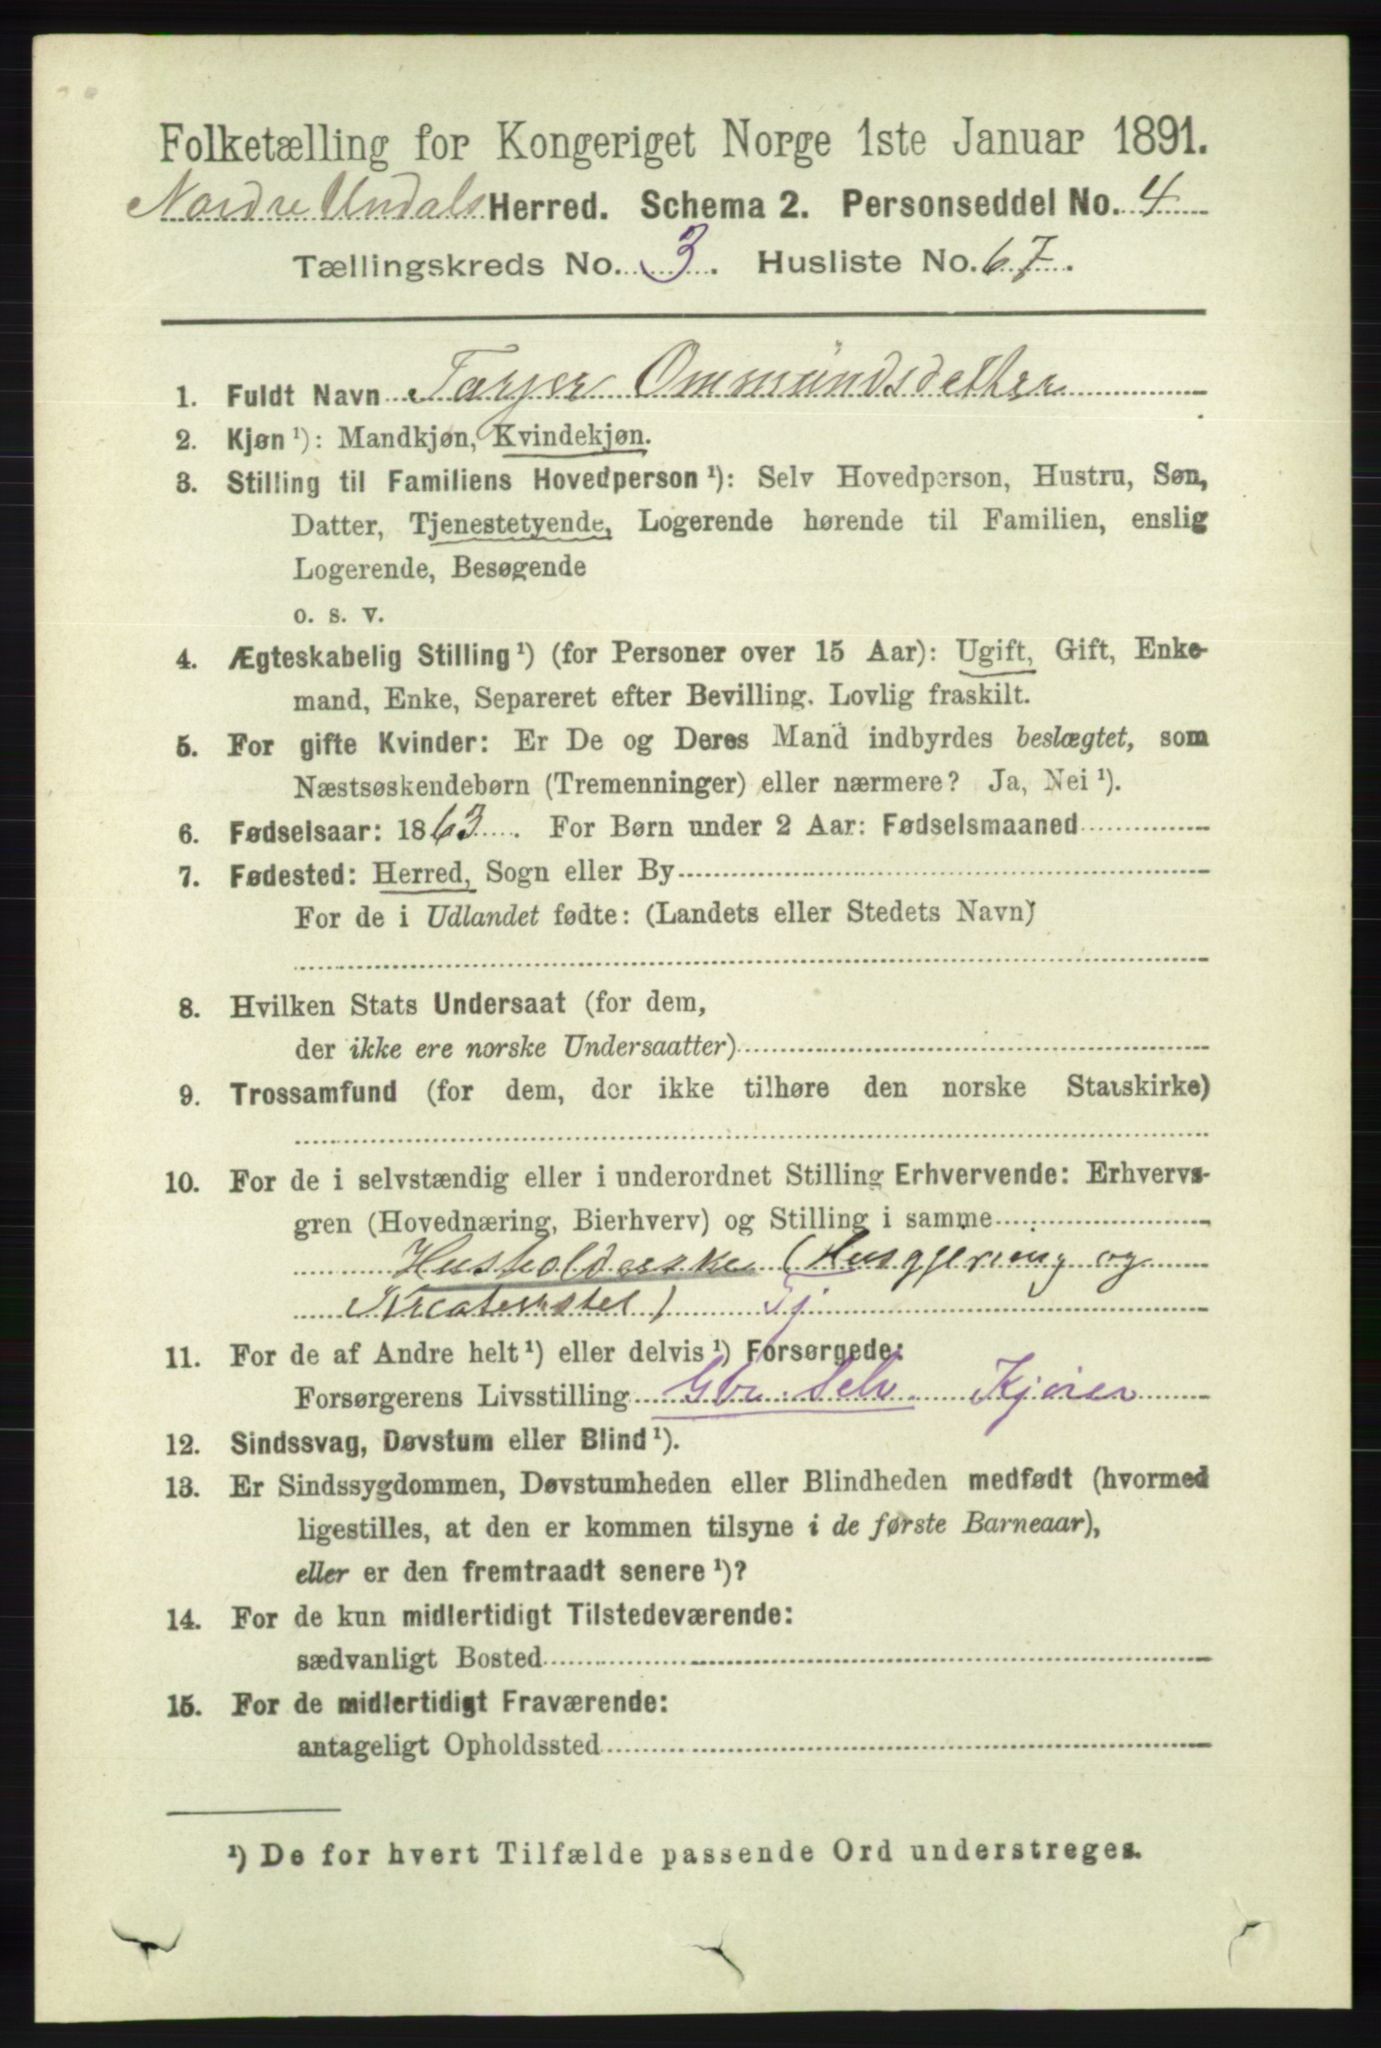 Folketælling for Kongeriget Norge 1ste Januar 1891.
Nordre Undals Herred. Schema 2. Personseddel No. 4
Tællingskreds No. 3. Husliste No. 67.
1. Fuldt Navn Tarjer Ommündsdetter
2. Kjøn ¹): Mandkjøn, Kvindekjøn.
3. Stilling til Familiens Hovedperson ¹): Selv Hovedperson, Hustru, Søn,
Datter, Tjenestetyende, Logerende hørende til Familien, enslig
Logerende, Besøgende
o. s. v.
4. Ægteskabelig Stilling ¹) (for Personer over 15 Aar): Ugift, Gift, Enke-
mand, Enke, Separeret efter Bevilling. Lovlig fraskilt.
5. For gifte Kvinder: Er De og Deres Mand indbyrdes beslægtet, som
Næstsøskendebørn (Tremenninger) eller nærmere? Ja, Nei ¹).
6. Fødselsaar: 1863. For Børn under 2 Aar: Fødselsmaaned
7. Fødested: Herred, Sogn eller By
For de i Udlandet fødte: (Landets eller Stedets Navn)
8. Hvilken Stats Undersaat (for dem,
der ikke ere norske Undersaatter)
9. Trossamfund (for dem, der ikke tilhøre den norske Statskirke)
10. For de i selvstændig eller i underordnet Stilling Erhvervende: Erhvervs-
gren (Hovednæring, Bierhverv) og Stilling i samme
Husholderske (Husgjerning og
Kreaturstel) Tj
11. For de af Andre helt ¹) eller delvis ¹) Forsørgede:
Forsørgerens Livsstilling Gbr. Selv
12. Sindssvag, Døvstum eller Blind ¹).
13. Er Sindssygdommen, Døvstumheden eller Blindheden medfødt (hvormed
ligestilles, at den er kommen tilsyne i de første Barneaar),
eller er den fremtraadt senere ¹)?
14. For de kun midlertidigt Tilstedeværende:
sædvanligt Bosted
15. For de midlertidigt Fraværende:
antageligt Opholdssted
¹) De for hvert Tilfælde passende Ord understreges.